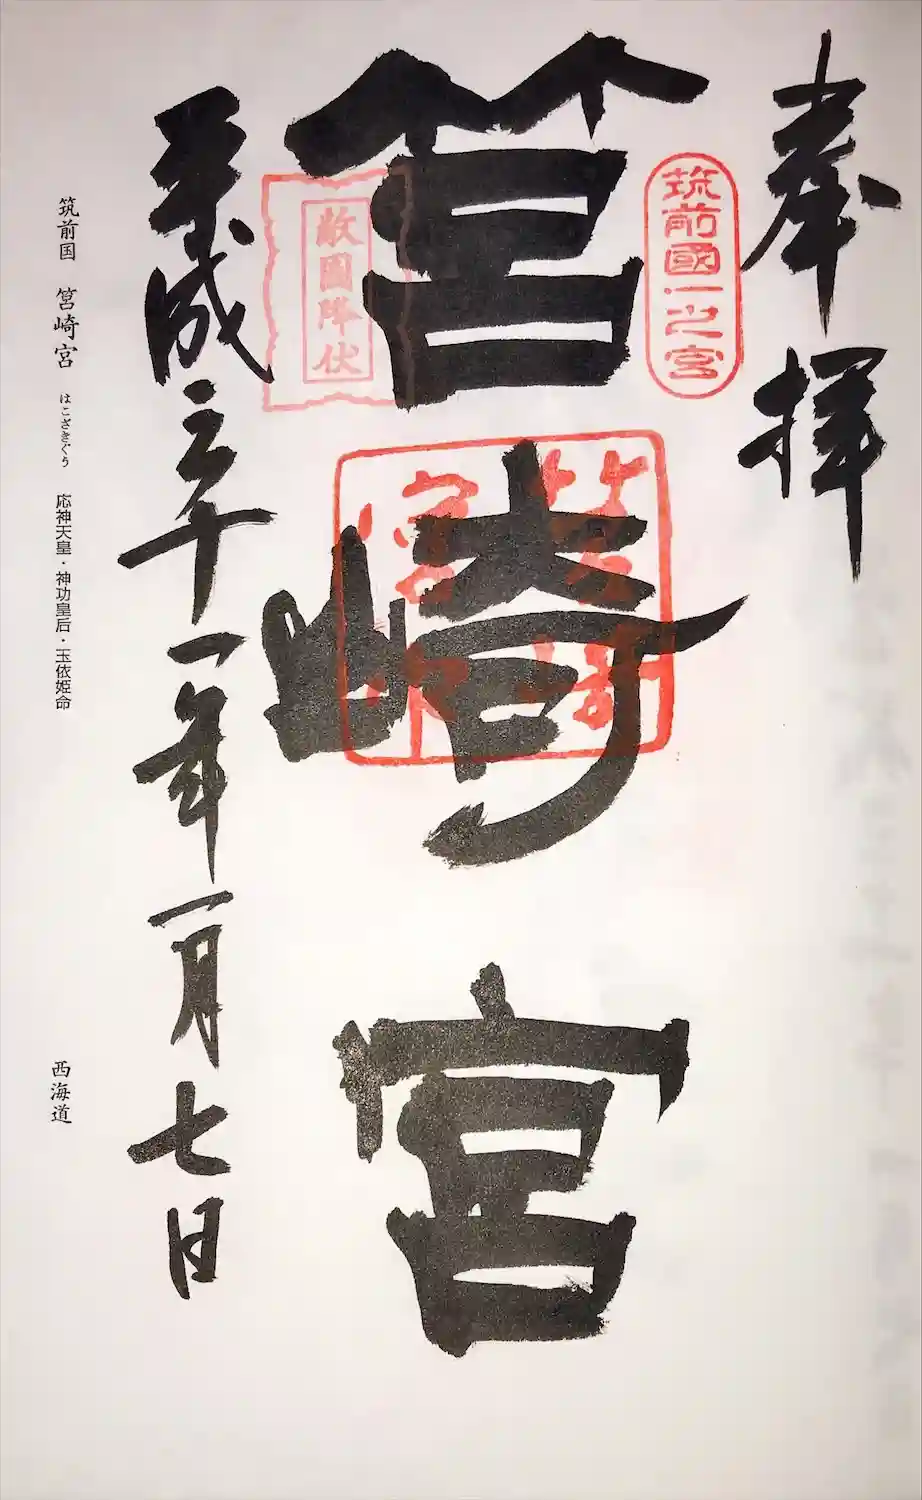 奉拝
筑前國一之宮
筥崎宮
敵国降伏
筥崎宮
平成三十一年一月七日
筑前国 筥崎宮 はこざきぐう 応神天皇・神功皇后・玉依姫命
西海道